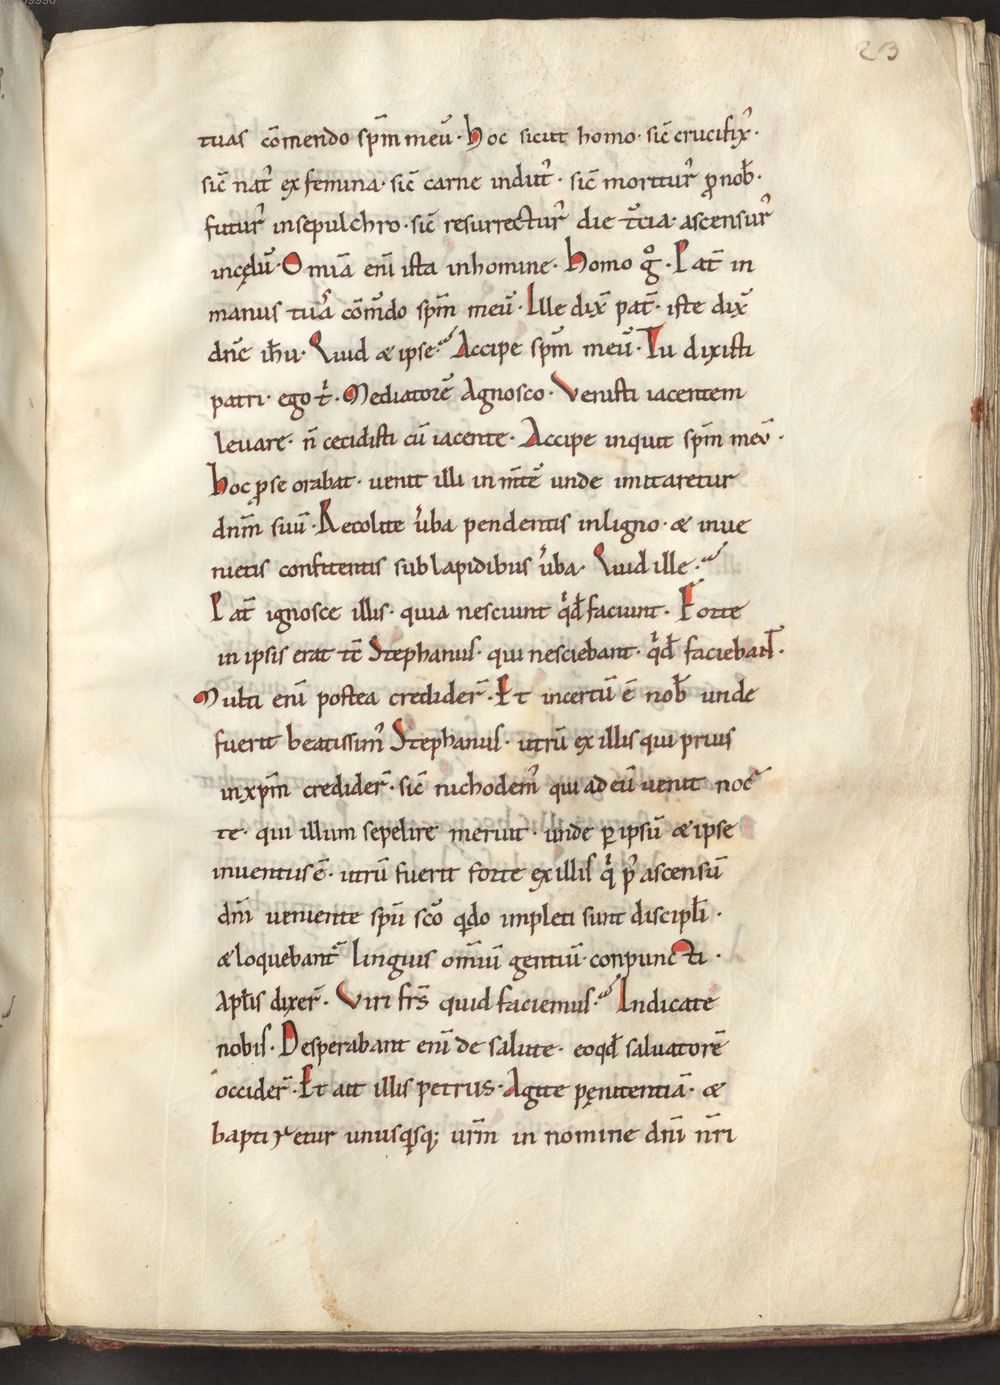 23
tuas cōmendo sp̄m meū · hoc sicut homo · sic̄ crucifix᾽ ·
sic̄ nat᾽ ex femina · sic̄ carne indut᾽ · sic̄ moritur᾽ ꝓ nob̄ ·
futur᾽ in sepulchro · sic̄ resurrectur᾽ die t̄cia · ascensur᾽
in cęlū · Omīa enī ista in homine · homo gͦ · Pat̄ in
manus tuaˢ cōm̄do sp̄m meū · Ille dix̄ pat̄ · iste dix̄
dn̄e ih̄u · Quid & ipse · Accipe sp̄m meū · Tu dixisti
patri · ego t ͥ · Mediatorē Agnosco · Venisti iacentem
leuare · n̄ cecidisti cū iacente · Accipe inquit sp̄m meū ·
hoc ꝓ se orabat · uenit illi in m̄tē unde imitaretur
dn̄m suū · Recolite u᾽ba pendentis in ligno · & inue
nietis confitentis sub lapidibus u᾽ba · Quid ille ·
Pat̄ ignosce illis · quia nesciunt qͥd faciunt · Forte
in ipsis erat tc̄ Stephanus · qui nesciebant · qͥd faciebant ·
Multi enī postea credider̄ · Et incertū ē nob̄ unde
fuerit beatissim᾽ Stephanus · utrū ex illis qui prius
in xp̄m credider̄ · sic̄ nichodem᾽ qui ad eū uenit noc
te · qui illum sepelire meruit · unde ꝑ ipsū & ipse
inuentus ē · utrū fuerit forte ex illis qͥ p᾽ ascensū
dn̄i ueniente sp̄u sc̄o qͣdo impleti sunt discipl̄i ·
& loquebant᾽ linguis om̄iū gentiū · conpuncti ·
apl̄is dixer̄ · Viri frs̄ quid faciemus · Indicate
nobis · Desperabant enī de salute · eo qd̄ saluatorē
occider̄ · Et ait illis petrus · Agite pęnitentiā · &
baptizetur unusqͥsq; ur̄m in nomine dn̄i nr̄i